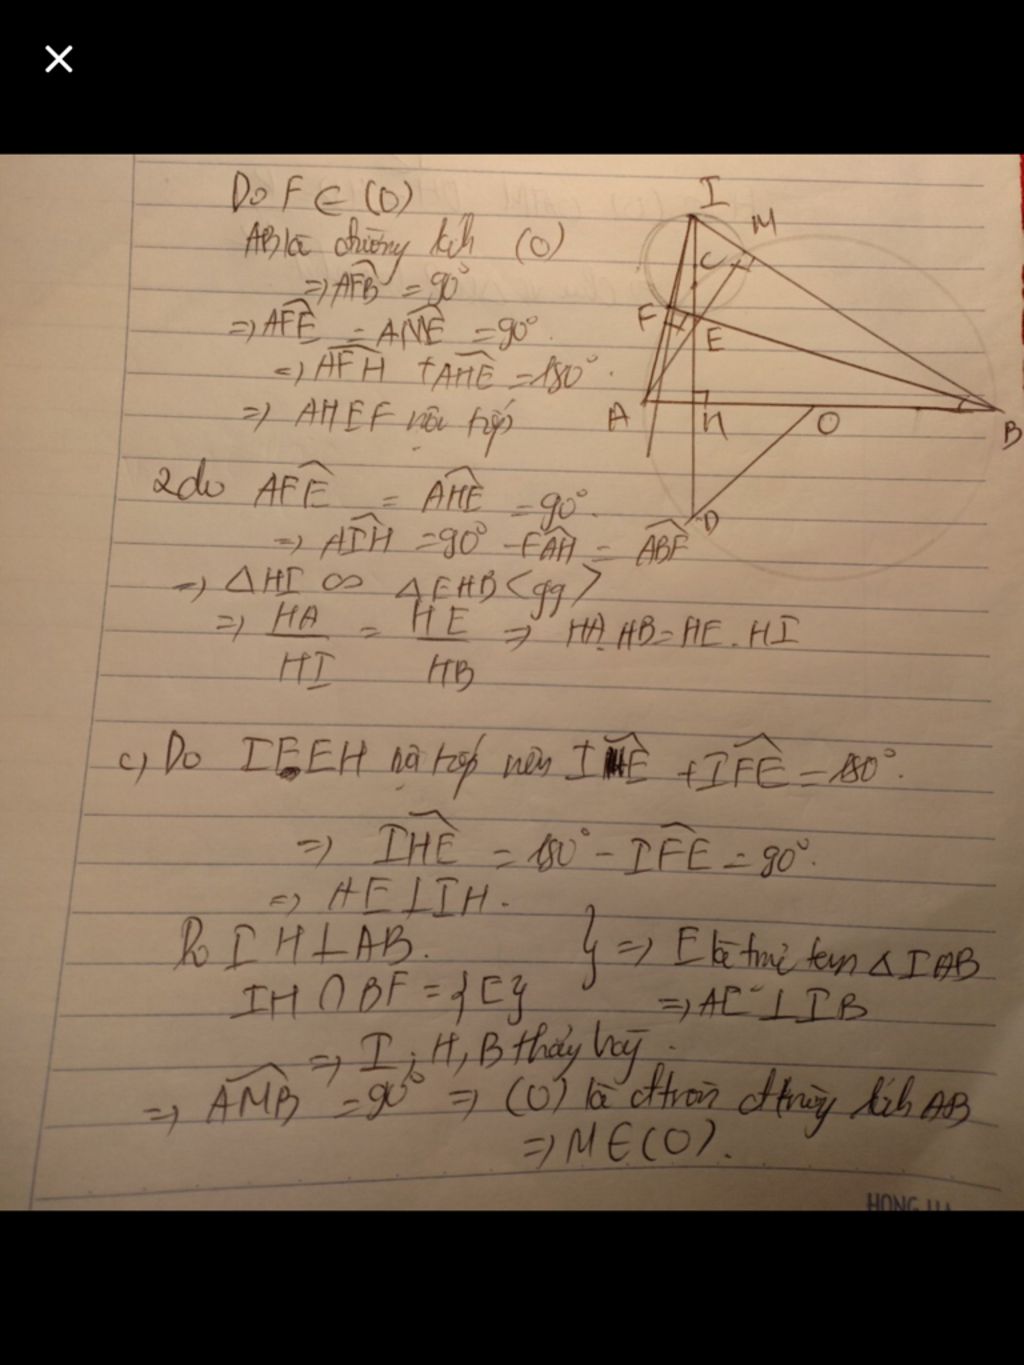 Do F ∈ (O)
AB là đường kính (O)
=> AFB = 90°
=> AFE = AME = 90°.
=> AFH + AHE = 180°.
=> AHEF nội tiếp
I
M
C
F
E
A
H
O
B
D
2 do AFE = AHE = 90°.
=> AIH = 90° - FAH = ABF
=> △HI ∞ △EHB <gg>
=> HA/HI = HE/HB => HA.HB = HE.HI
c, Do IFEH nội tiếp nên IHE + IFE = 180°.
=> IHE = 180° - IFE = 90°.
=> HE ⊥ IH.
Do IH ⊥ AB.
IH ∩ BF = {E}
} => E là trực tâm △IAB
=> AE ⊥ IB
=> I, H, B thẳng hàng.
=> AMB = 90° => (O) là đtròn đường kính AB
=> M ∈ (O).